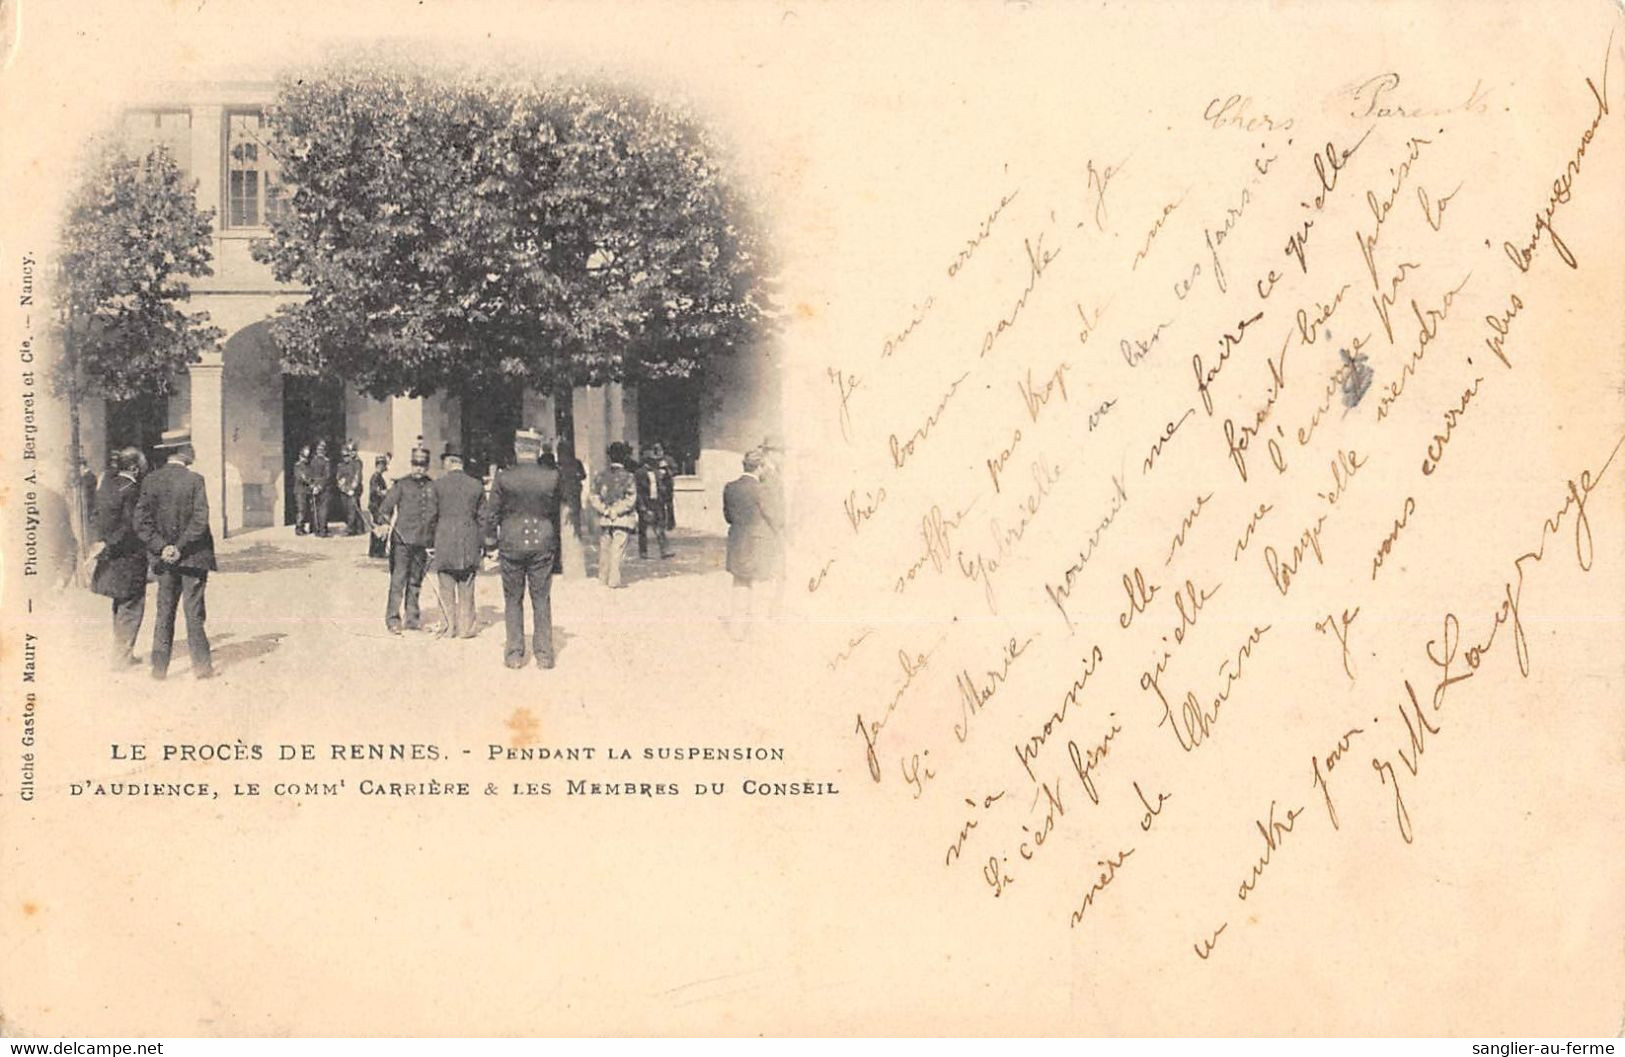 Cliché Gaston Maury — Phototypie A. Bergeret et Cie. — Nancy.
LE PROCÈS DE RENNES. - PENDANT LA SUSPENSION
D'AUDIENCE, LE COMMt CARRIÈRE & LES MEMBRES DU CONSEIL
Chers Parents.
Je suis arrivé
en très bonne santé. Je
ne souffre pas trop de ma
jambe. Gabrielle va bien ces jours-ci.
Si Marie pouvait me faire ce qu'elle
m'a promis elle me ferait bien plaisir.
Si c'est fini qu'elle me l'envoye par la
mère de Chaîne lorsqu'elle viendra
Je vous ecrirai plus longuement
un autre jour.
JM Lagrange
delcampe.net
sanglier-au-ferme